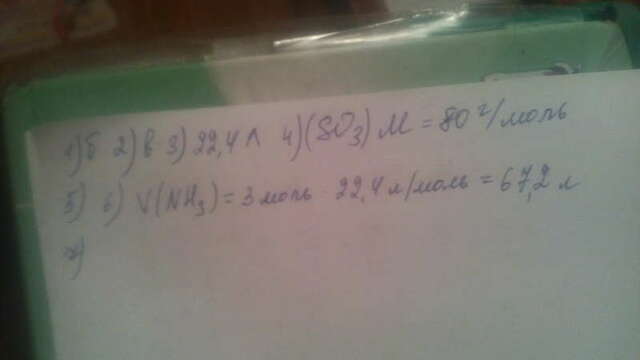 1) б 2) в 3) 22,4 л 4) (SO₃) M = 80 г/моль
5) 6) V(NH₃) = 3 моль · 22,4 л/моль = 67,2 л
7)